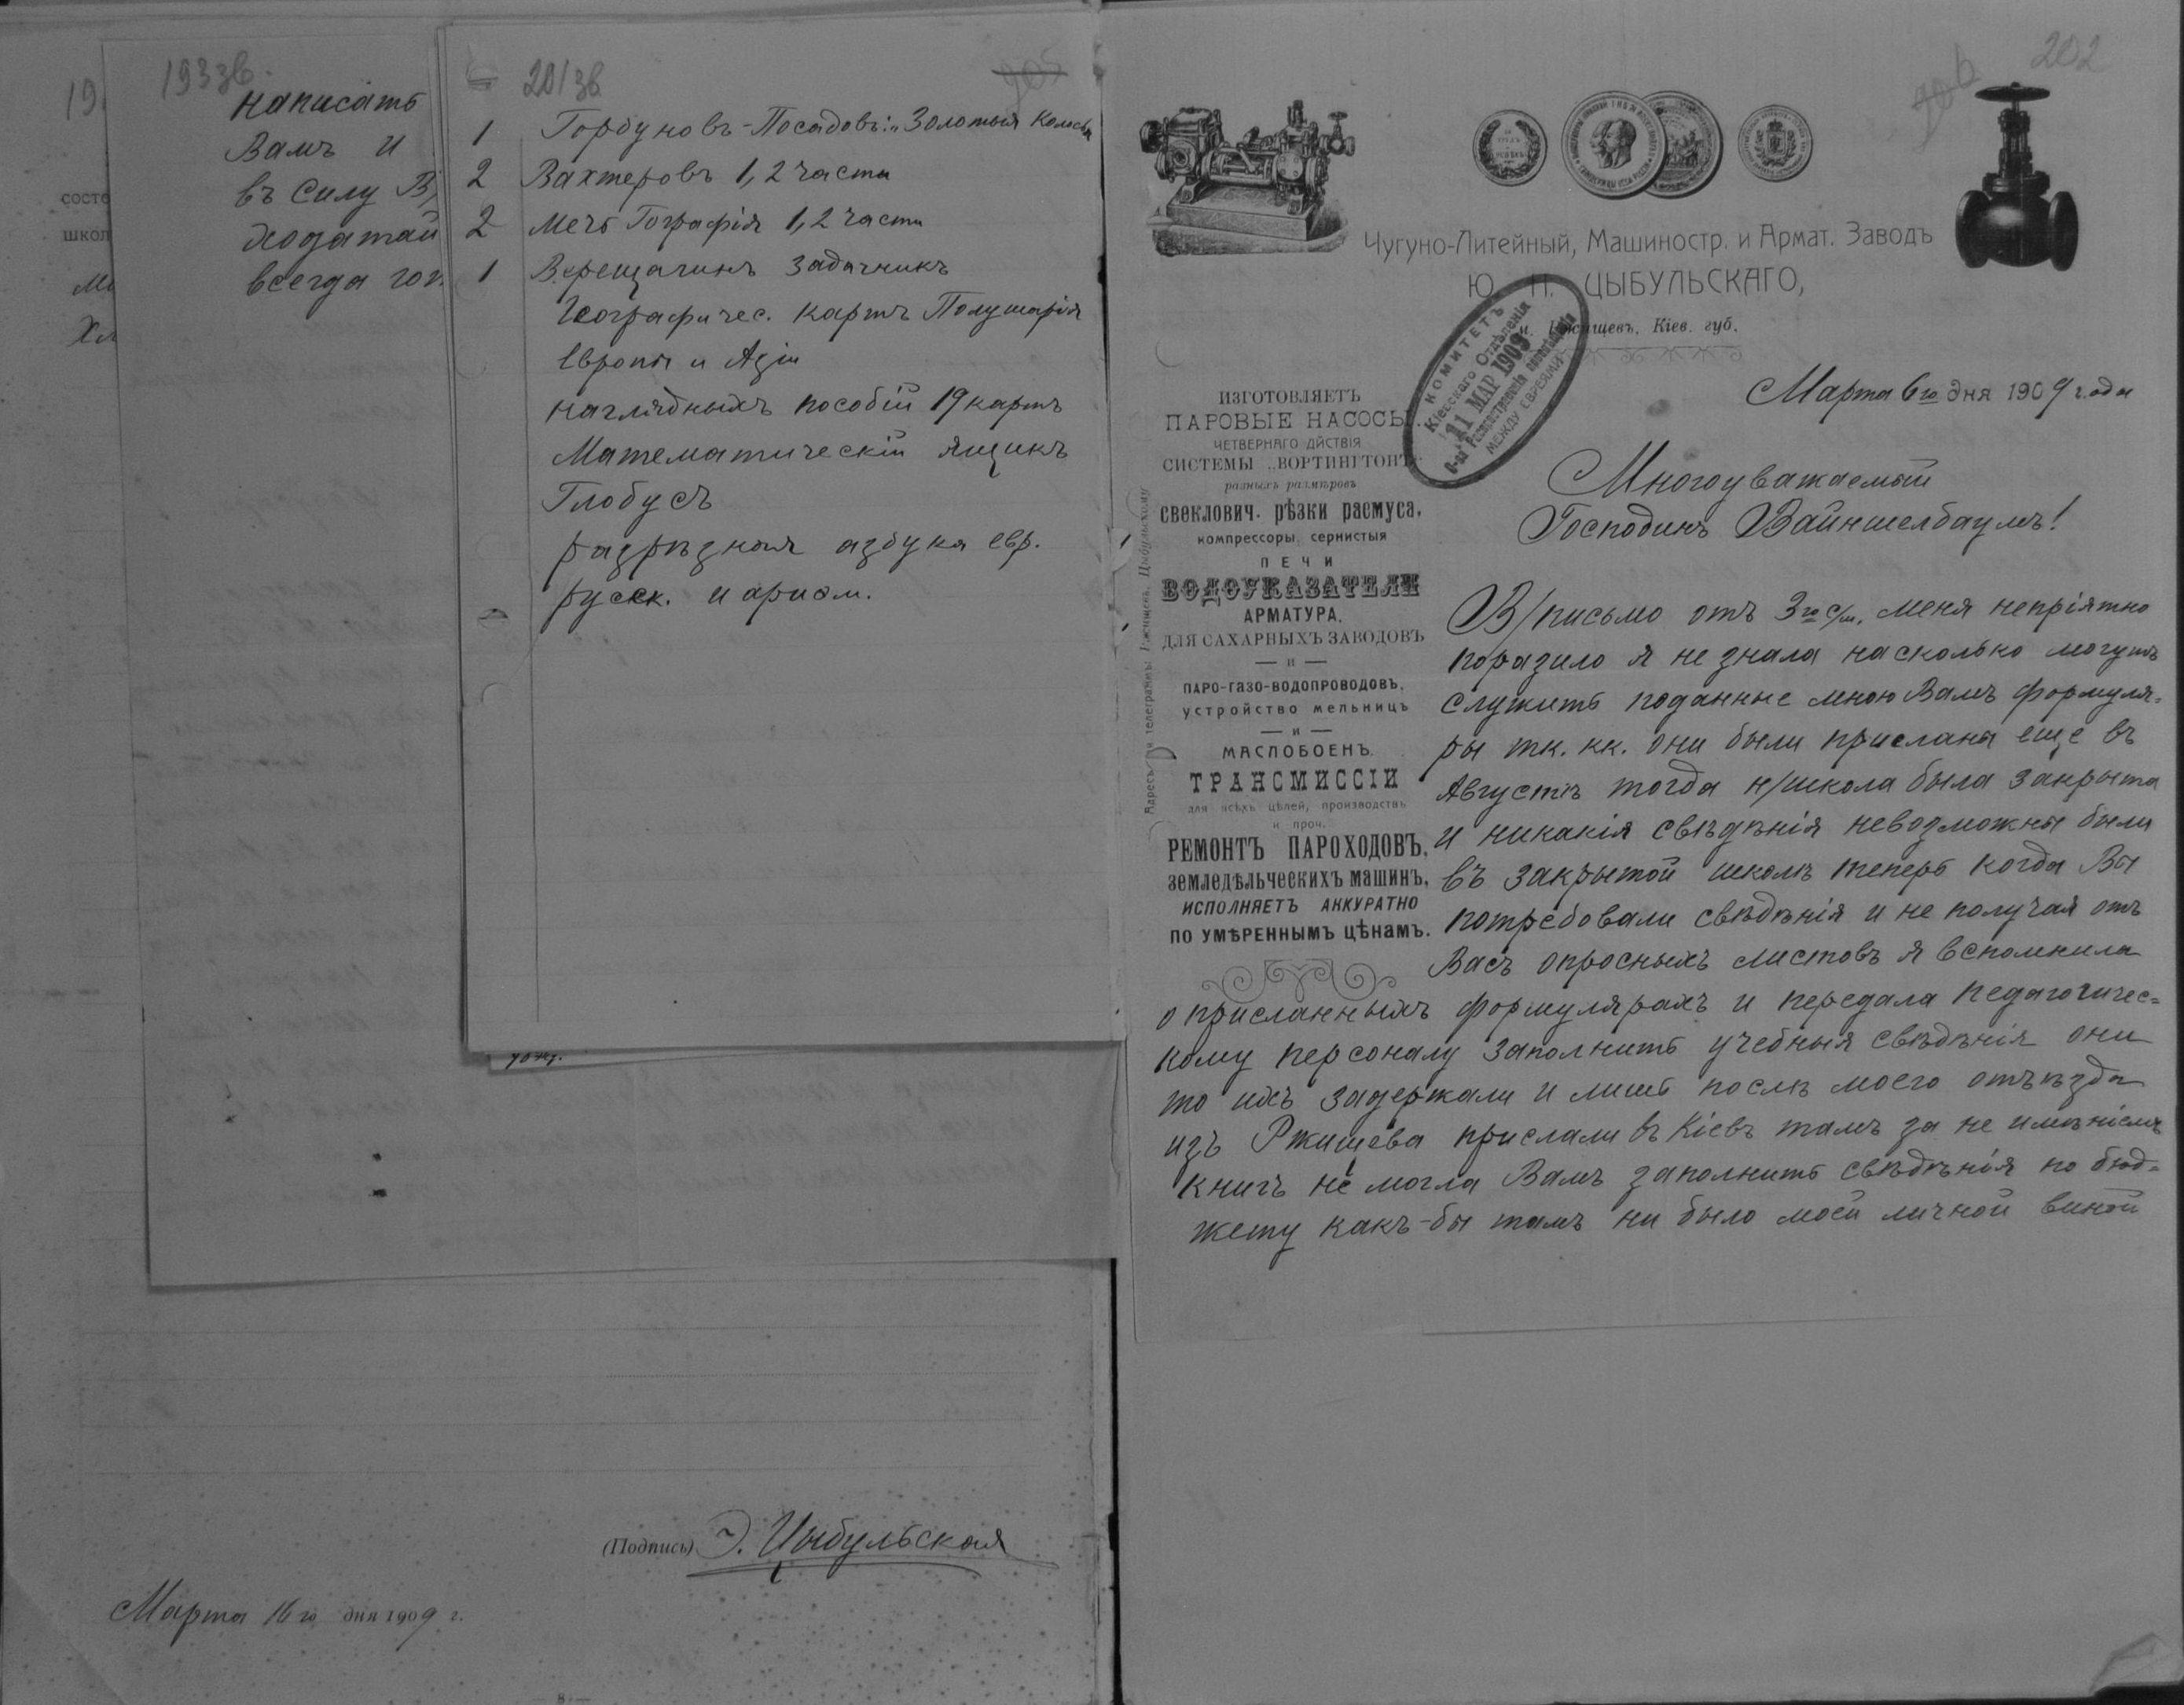 193зв.
написать
Вамъ и
въ силу В/
ходатай
всегда гот
19
состо
школ
201зв
205
1 Горбуновъ-Посадовъ: „Золотыя Колосья
2 Вахтеровъ 1, 2 части
2 Мечь Гографія 1, 2 части
1 Верещагинъ задачникъ
Географичес. картъ Полушарія
Европы и Азіи
наглядныхъ пособій 19 картъ
Математическій ящикъ
Глобусъ
разрѣзная азбука евр.
русск. и ариѳм.
(Подпись) Э. Цыбульская
Марта 16го дня 1909 г.
8
202
206
Чугуно-Литейный, Машиностр. и Армат. Заводъ
Ю. Н. ЦЫБУЛЬСКАГО,
м. Ржищевъ, Кіев. губ.
КОМИТЕТЪ
Кіевскаго Отдѣленія
11 МАР 1909
О-ва Распространенія просвѣщенія
МЕЖДУ ЕВРЕЯМИ
Адресъ для телеграммы: Ржищевъ, Цыбульскому
ИЗГОТОВЛЯЕТЪ
ПАРОВЫЕ НАСОСЫ
ЧЕТВЕРНАГО ДЙСТВІЯ
СИСТЕМЫ „ВОРТИНГТОНЪ“
разныхъ размѣровъ
свеклович. рѣзки расмуса,
компрессоры, сернистыя
ПЕЧИ
ВОДОУКАЗАТЕЛИ
АРМАТУРА.
ДЛЯ САХАРНЫХЪ ЗАВОДОВЪ
— и —
ПАРО-ГАЗО-ВОДОПРОВОДОВЪ,
устройство мельницъ
— и —
МАСЛОБОЕНЪ.
ТРАНСМИССІИ
для всѣхъ цѣлей, производствъ
и проч.
РЕМОНТЪ ПАРОХОДОВЪ,
земледѣльческихъ машинъ,
ИСПОЛНЯЕТЪ АККУРАТНО
ПО УМѢРЕННЫМЪ ЦѢНАМЪ.
Марта 6го дня 1909 года
Многоуважаемый
Господинъ Вайншелбаумъ!
В/письмо отъ 3го с/м. меня непріятно
поразило я не знала насколько могутъ
служить поданные мною Вамъ формуля-
ры тк. кк. они были прислана еще въ
Августѣ тогда н/школа была закрыта
и никакія свѣдѣнія невозможны были
въ закрытой школѣ теперь когда Вы
потребовали свѣдѣнія и не получая отъ
Васъ опросныхъ листовъ я вспомнила
о присланныхъ формулярахъ и передала педагогичес=
кому персоналу заполнить учебныя свѣдѣнія они
то ихъ задержали и лишь послѣ моего отъѣзда
изъ Ржищева прислали въ Кіевъ тамъ за не имѣніемъ
книгъ не могла Вамъ заполнить свѣдѣнія по бюд=
жету какъ-бы тамъ ни было моей личной виной